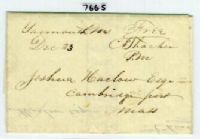 7665
Yarmouth Ms
Dec 23
Free
C Thacher
P.M
Joshua Harlow Esqr
Cambridge port
Mass